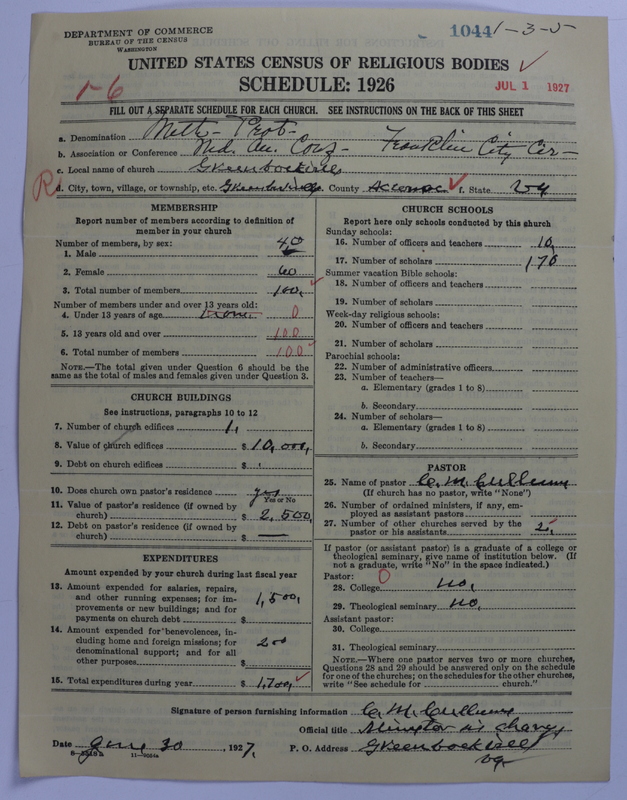 DEPARTMENT OF COMMERCE
BUREAU OF THE CENSUS
WASHINGTON
1044 1-3-5
UNITED STATES CENSUS OF RELIGIOUS BODIES
SCHEDULE: 1926
JUL 1 1927
1-6
FILL OUT A SEPARATE SCHEDULE FOR EACH CHURCH. SEE INSTRUCTIONS ON THE BACK OF THIS SHEET
a. Denomination Meth- Prot-
b. Association or Conference Md. An. Conf- Franklin City Cir-
c. Local name of church Greenbackville
R
d. City, town, village, or township, etc. Greenbackville County Accomac f. State Va
MEMBERSHIP
Report number of members according to definition of member in your church
Number of members, by sex:
1. Male 40
2. Female 60
3. Total number of members 100,
Number of members under and over 13 years old:
4. Under 13 years of age 0
5. 13 years old and over 100
6. Total number of members 100
NOTE.—The total given under Question 6 should be the
same as the total of males and females given under Question 3.
CHURCH BUILDINGS
See instructions, paragraphs 10 to 12
7. Number of church edifices 1,
8. Value of church edifices $ 10,000,
9. Debt on church edifices $
10. Does church own pastor's residence yes
Yes or No
11. Value of pastor's residence (if owned by
church) $ 2,500,
12. Debt on pastor's residence (if owned by
church) $ —
EXPENDITURES
Amount expended by your church during last fiscal year
13. Amount expended for salaries, repairs,
and other running expenses; for im-
provements or new buildings; and for
payments on church debt $ 1,500,
14. Amount expended for benevolences, in-
cluding home and foreign missions; for
denominational support; and for all
other purposes $ 200
15. Total expenditures during year $ 1,700,
CHURCH SCHOOLS
Report here only schools conducted by this church
Sunday schools:
16. Number of officers and teachers 10,
17. Number of scholars 170
Summer vacation Bible schools:
18. Number of officers and teachers
19. Number of scholars
Week-day religious schools:
20. Number of officers and teachers
21. Number of scholars
Parochial schools:
22. Number of administrative officers
23. Number of teachers—
a. Elementary (grades 1 to 8)
b. Secondary
24. Number of scholars—
a. Elementary (grades 1 to 8)
b. Secondary
PASTOR
25. Name of pastor C. M. Cullum
(If church has no pastor, write "None")
26. Number of ordained ministers, if any, em-
ployed as assistant pastors
27. Number of other churches served by the
pastor or his assistants 2,
If pastor (or assistant pastor) is a graduate of a college or
theological seminary, give name of institution below. (If
not a graduate, write "No" in the space indicated.)
Pastor: 0
28. College no,
29. Theological seminary no,
Assistant pastor:
30. College
31. Theological seminary
NOTE.—Where one pastor serves two or more churches,
Questions 28 and 29 should be answered only on the schedule
for one of the churches; on the schedules for the other churches,
write "See schedule for church."
Signature of person furnishing information C. M. Cullum
Official title Minister in charge
Date June 30, 1927. P. O. Address Greenbackville
Va
11—9054a